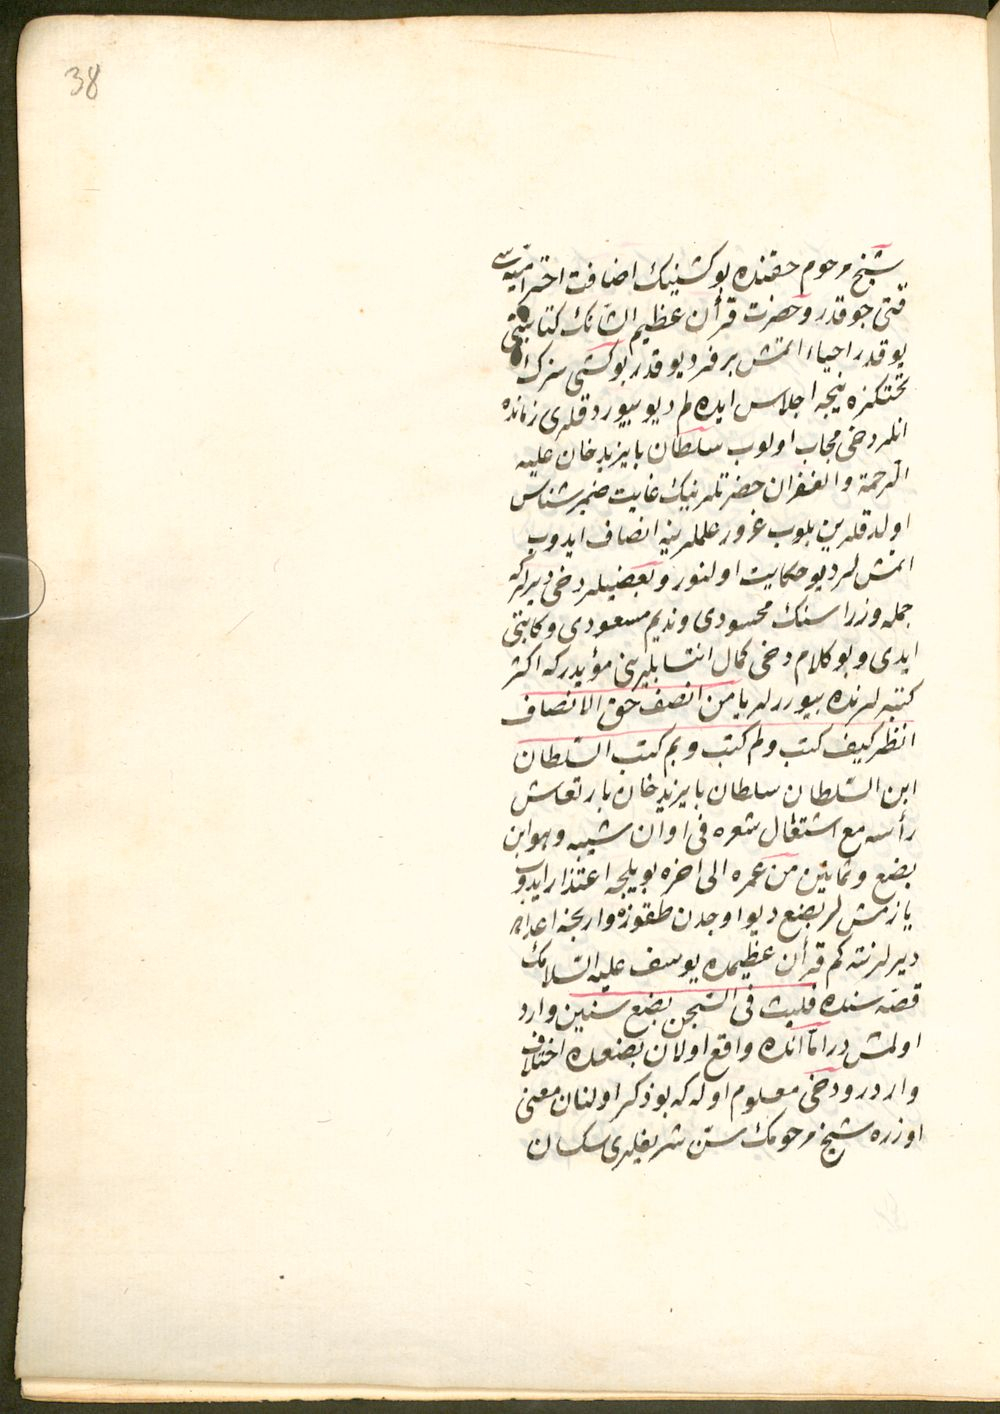 38
شیخ مرحوم حقنده بو كشینیك اضافت احترامیه سی
قتی جوقدر و حضرت قرأن عظیم الشانك كتابتی
بو قدر احیاء اتمش بر فرد یوقدر بو كشی سزك
تحتكزه نیجه اجلاس ایده لم دیو بیوردقلری زمانده
انلر دخی مجاب اولوب سلطان بایزید خان علیه
الرحمة والغفران حضرتلرینك غایت ضمیر شناس
اولدقلرین بلوب غرور علملرینه انصاف ایدوب
اتمشلر دیو حكایت اولنور و بعضیلر دخی دیرلركه
جمله وزراسنك محسودی و ندیم مسعودی و كاتبی
ایدی و بو كلام دخی كمال انتسابلرینی مؤیدركه اكثر
كتبه لرنده بیوررلر یا من انصف حق الانصاف
انظر كیف كتب و لم كتب و بم كتب السلطان
ابن السلطان سلطان بایزید خان بارتعاش
رأسه مع اشتعال شعره فی اوان شیبه و هو ابن
بضع و ثمانین من عمره الی اخره بویلجه اعتذار ایدوب
یازمشلر بضع دیو اوجدن طقوزه وارنجه اعداده
دیرلر نته كم قرأن عظیمده یوسف علیه السلامك
قصه سنده فلبث فی السجن بضع سنین وارد
اولمشدر اما انده واقع اولان بضعده اختلاف
واردر و دخی معلوم اوله كه بو ذكر اولنان معنی
اوزره شیخ مرحومك سن شریفلری سكسان